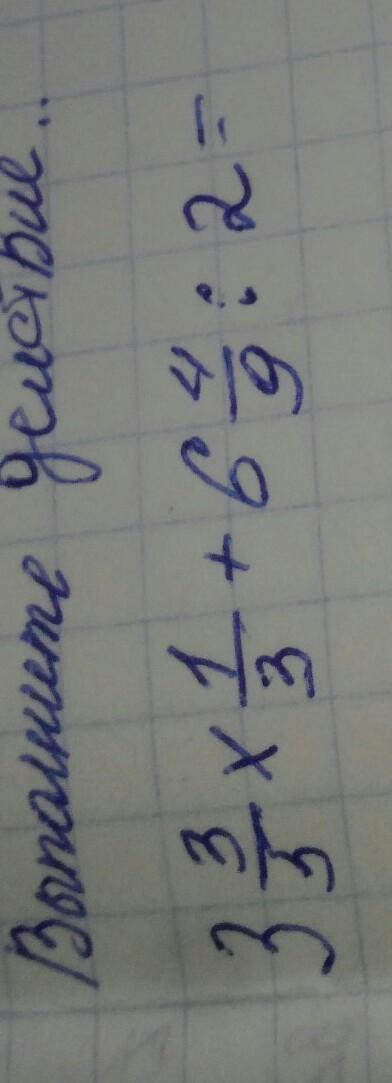 Выполните действие..
3 3/3 × 1/3 + 6 4/9 : 2 =